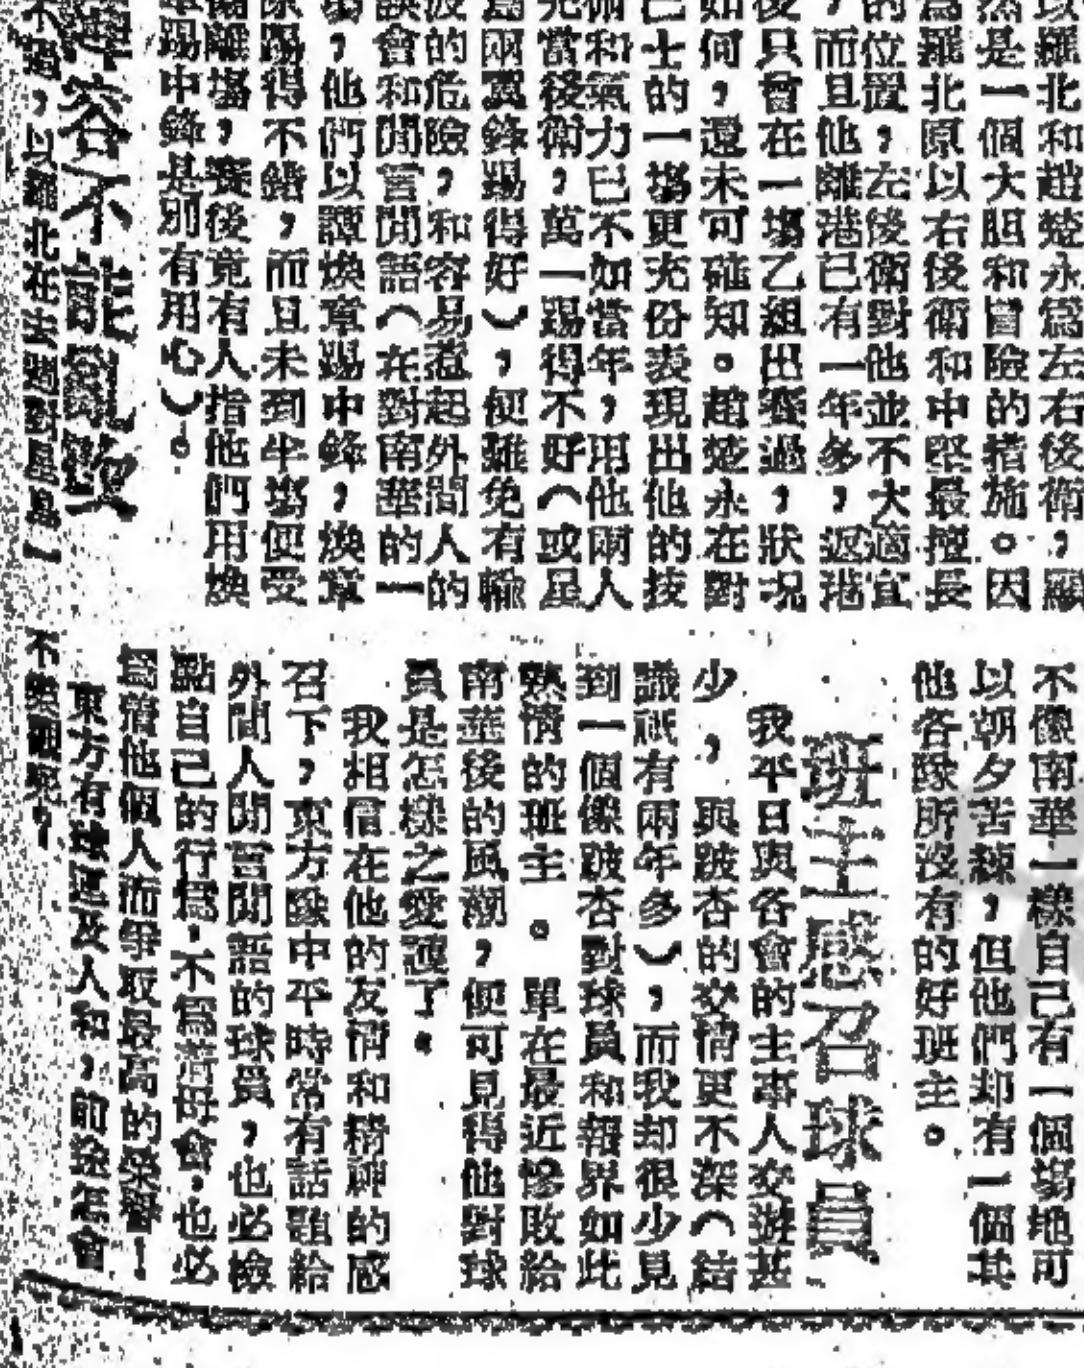 以羅北和趙楚永爲左右後衛，顯
然是一個大胆和冒險的措施。因
爲羅北原以右後衛和中堅最擅長
的位置，左後衛對他並不大適宜
，而且他離港已有一年多，返港
後只會在一場乙組出賽過，狀况
如何，還未可確知。趙楚永在對
巴士的一場更充份表現出他的技
倆和氣力已不如當年，用他兩人
充當後衛，萬一踢得不好（或星
島兩翼鋒踢得好），便難免有輸
波的危險，和容易惹起外間人的
誤會和閒言閒語（在對南華的一
場，他們以譚煥章踢中鋒，煥章
原踢得不錯，而且未到半場便受
傷離場，賽後竟有人指他們用煥
章踢中鋒是別有用心）。
陣容不能亂變
不過，以羅北在去週對星島一
不像南華一樣自己有一個場地可
以朝夕苦練，但他們却有一個其
他各隊所沒有的好班主。
班主感召球員
我平日與各會的主事人交遊甚
少，與跛杏的交情更不深（結
識祇有兩年多），而我却很少見
到一個像跛杏對球員和報界如此
熱情的班主。單在最近慘敗給
南華後的風潮，便可見得他對球
員是怎樣之愛護了。
我相信在他的友情和精神的感
召下，東方隊中平時常有話題給
外間人閒言閒語的球員，也必檢
點自己的行爲，不爲母會，也必
爲着他個人而爭取最高的榮譽！
東方有球運及人和，前途怎會
不樂觀呢？